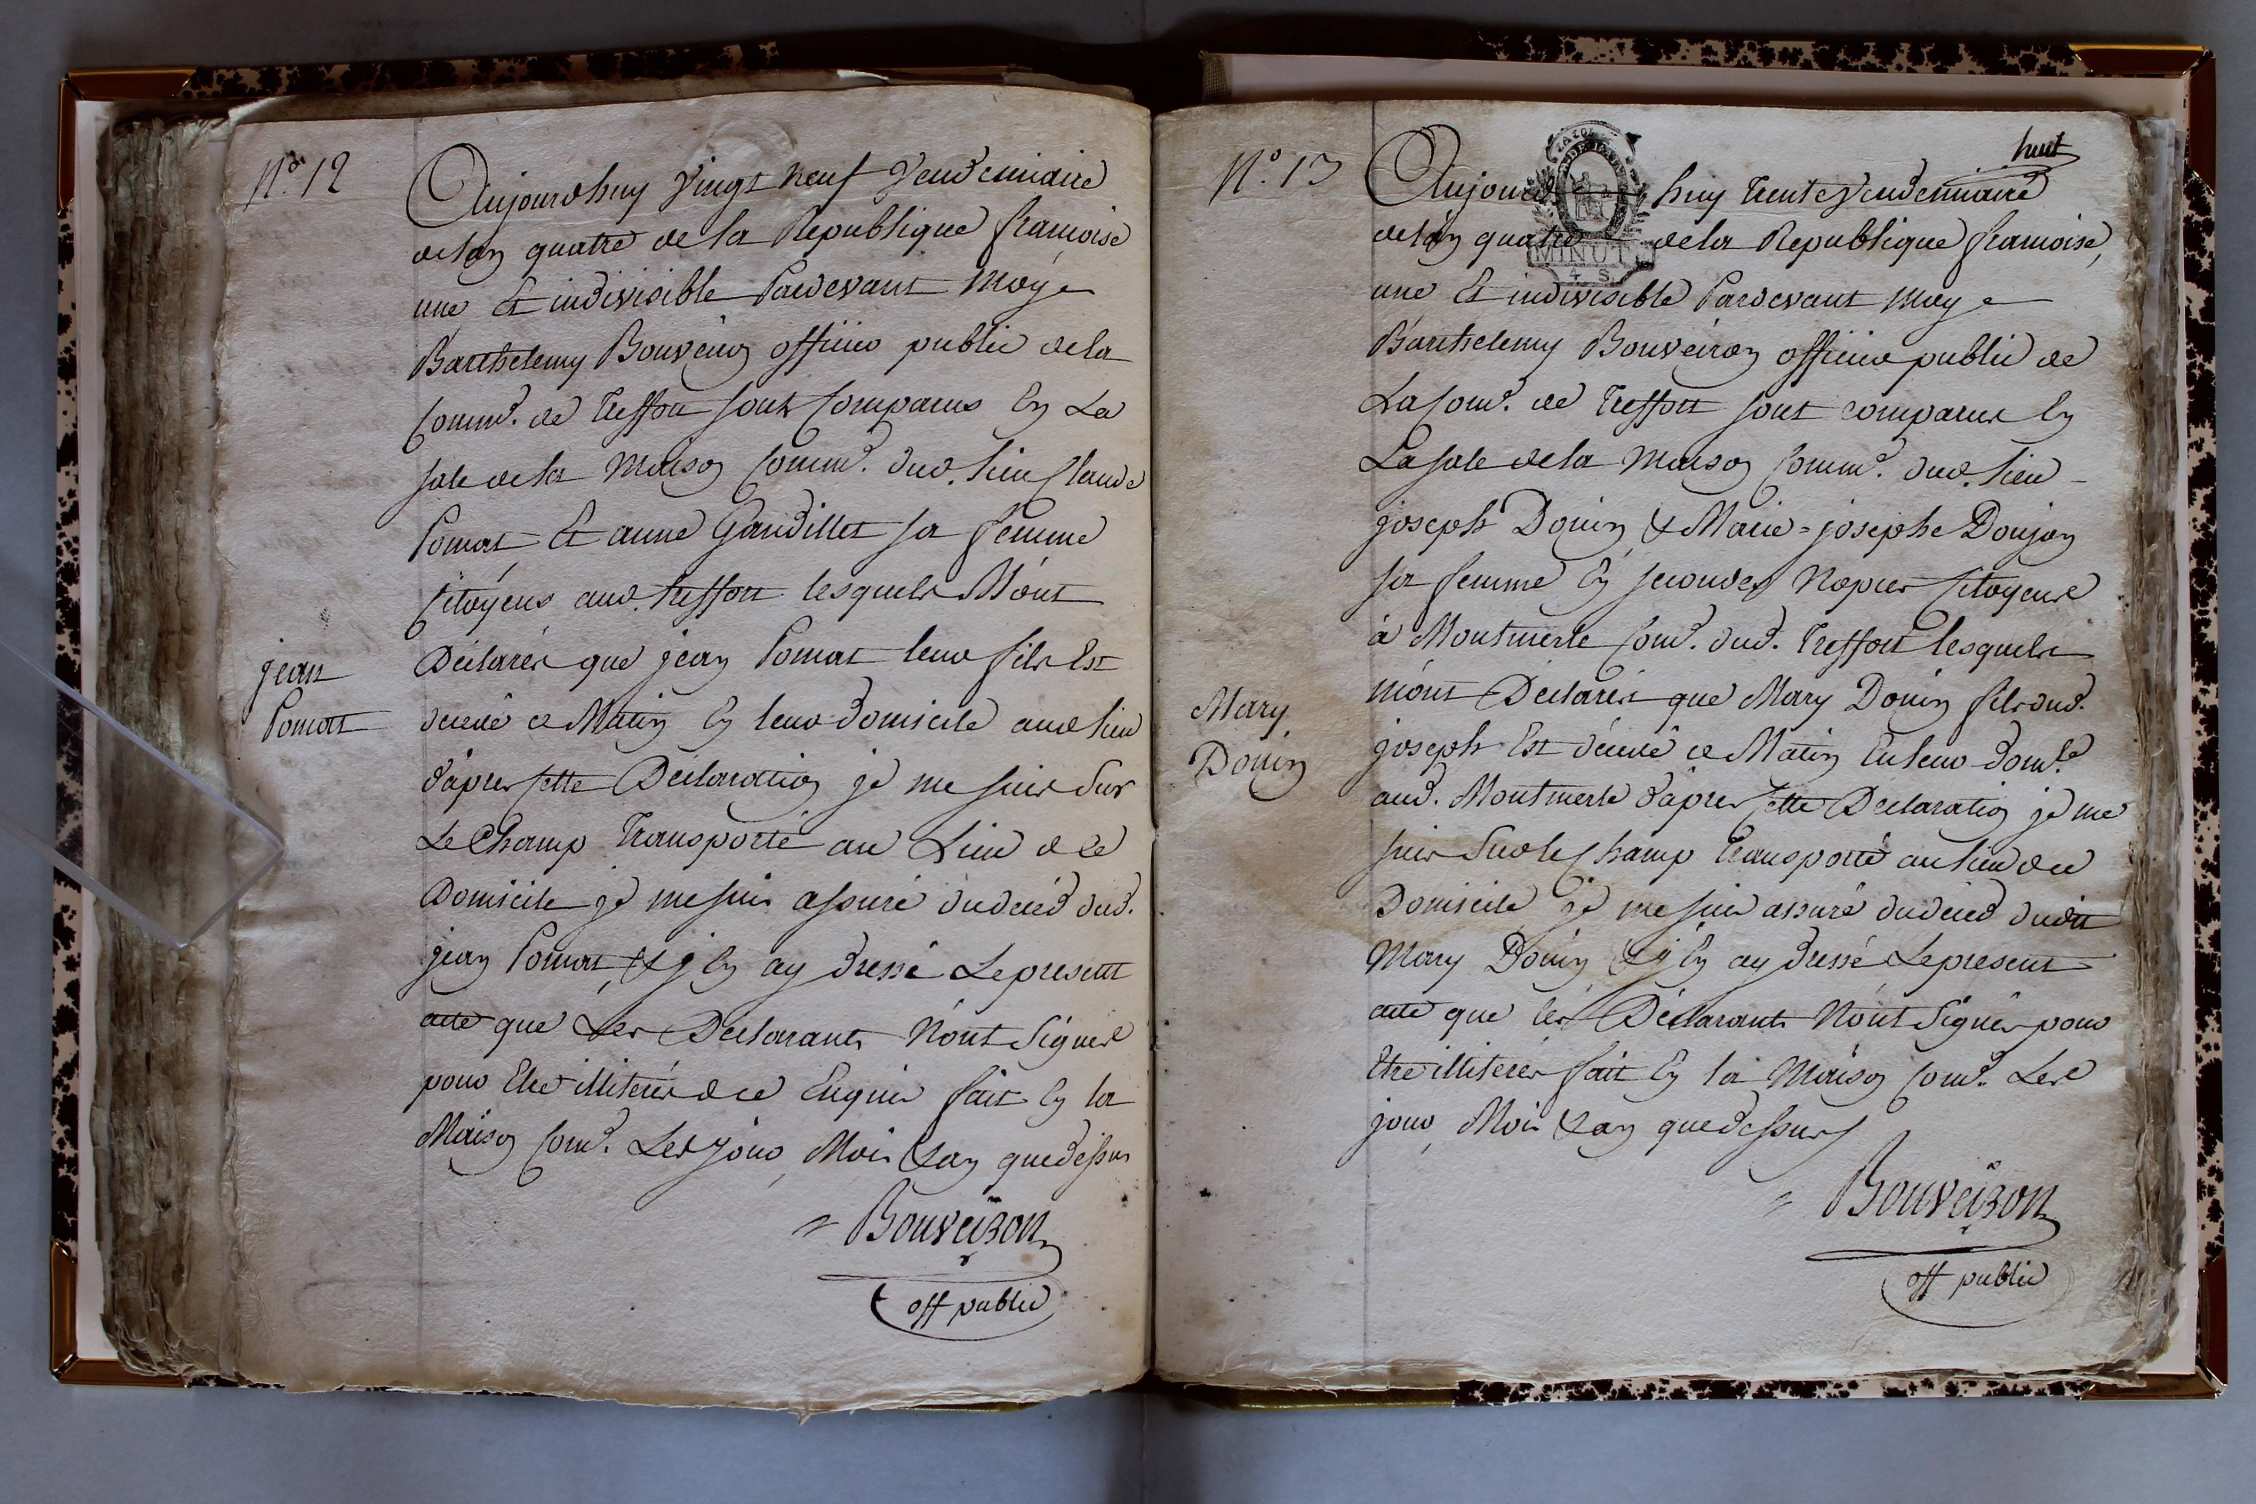 N.º 12
Aujourdhuy vingt neuf vendemiaire
de lan quatre de la Republique francoise
une Et indivisible Pardevant Moÿ
Barthelemy Bouveiron officier public de la
Comm.e de Treffort sont Comparus En La
sale de la Maison Comm.e dud. lieu Claude
Pomat Et anne Gaudillet sa femme
Citoÿens aud. treffort lesquels M'ont
Déclarés que jean Pomat leur fils Est
jean
Pomatt
décédé ce Matin En leur domicile aud lieu
d'après Cette Déclaration je me suis Sur
Le Champ Transporté au Lieu de ce
Domicile je me suis assuré du décéd dud.
jean Pomat, & j'En ay dressé Le present
acte que Les Declarants N'ont Signés
pour Etre illiterés de ce Enquis fait En la
Maison Com.e Les Jour, Mois & an que dessus
Bouveiron
off public
huit
N.º 13
Aujourd huy trente vendemiaire
de l'an quatre de la Republique francoise,
MINUT.
4 S.
une Et indivisible Pardevant Moy
Barthelemy Bouveiron officier public de
La Com.e de Treffort sont comparus En
La sale de la Maison Comm.e dud. lieu
joseph Douin & Marie=josephe Donjon
sa femme En secondes Nopces Citoyens
à Montmerle Com.e dud. Treffort lesquels
m'ont Déclarés que Mary Douin fils dud.
Mary
Douin
joseph Est décédé ce Matin En leur dom.le
aud. Montmerle d'après Cette Declaration je me
suis Sur le Champ transporté au lieu de ce
Domicile je me suis assuré du décéd dudit
Mary Douin & j'En ay dressé Le present
acte que les Déclarants N'ont Signés pour
Etre illiterés fait En la Maison Com.e Les
jour, Mois & an que dessus
Bouveiron
off public